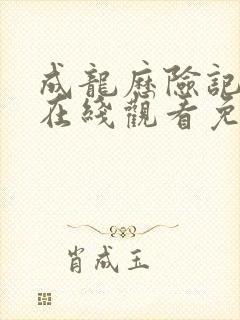 成龍歷險記
在綫觀看免
肖成玉